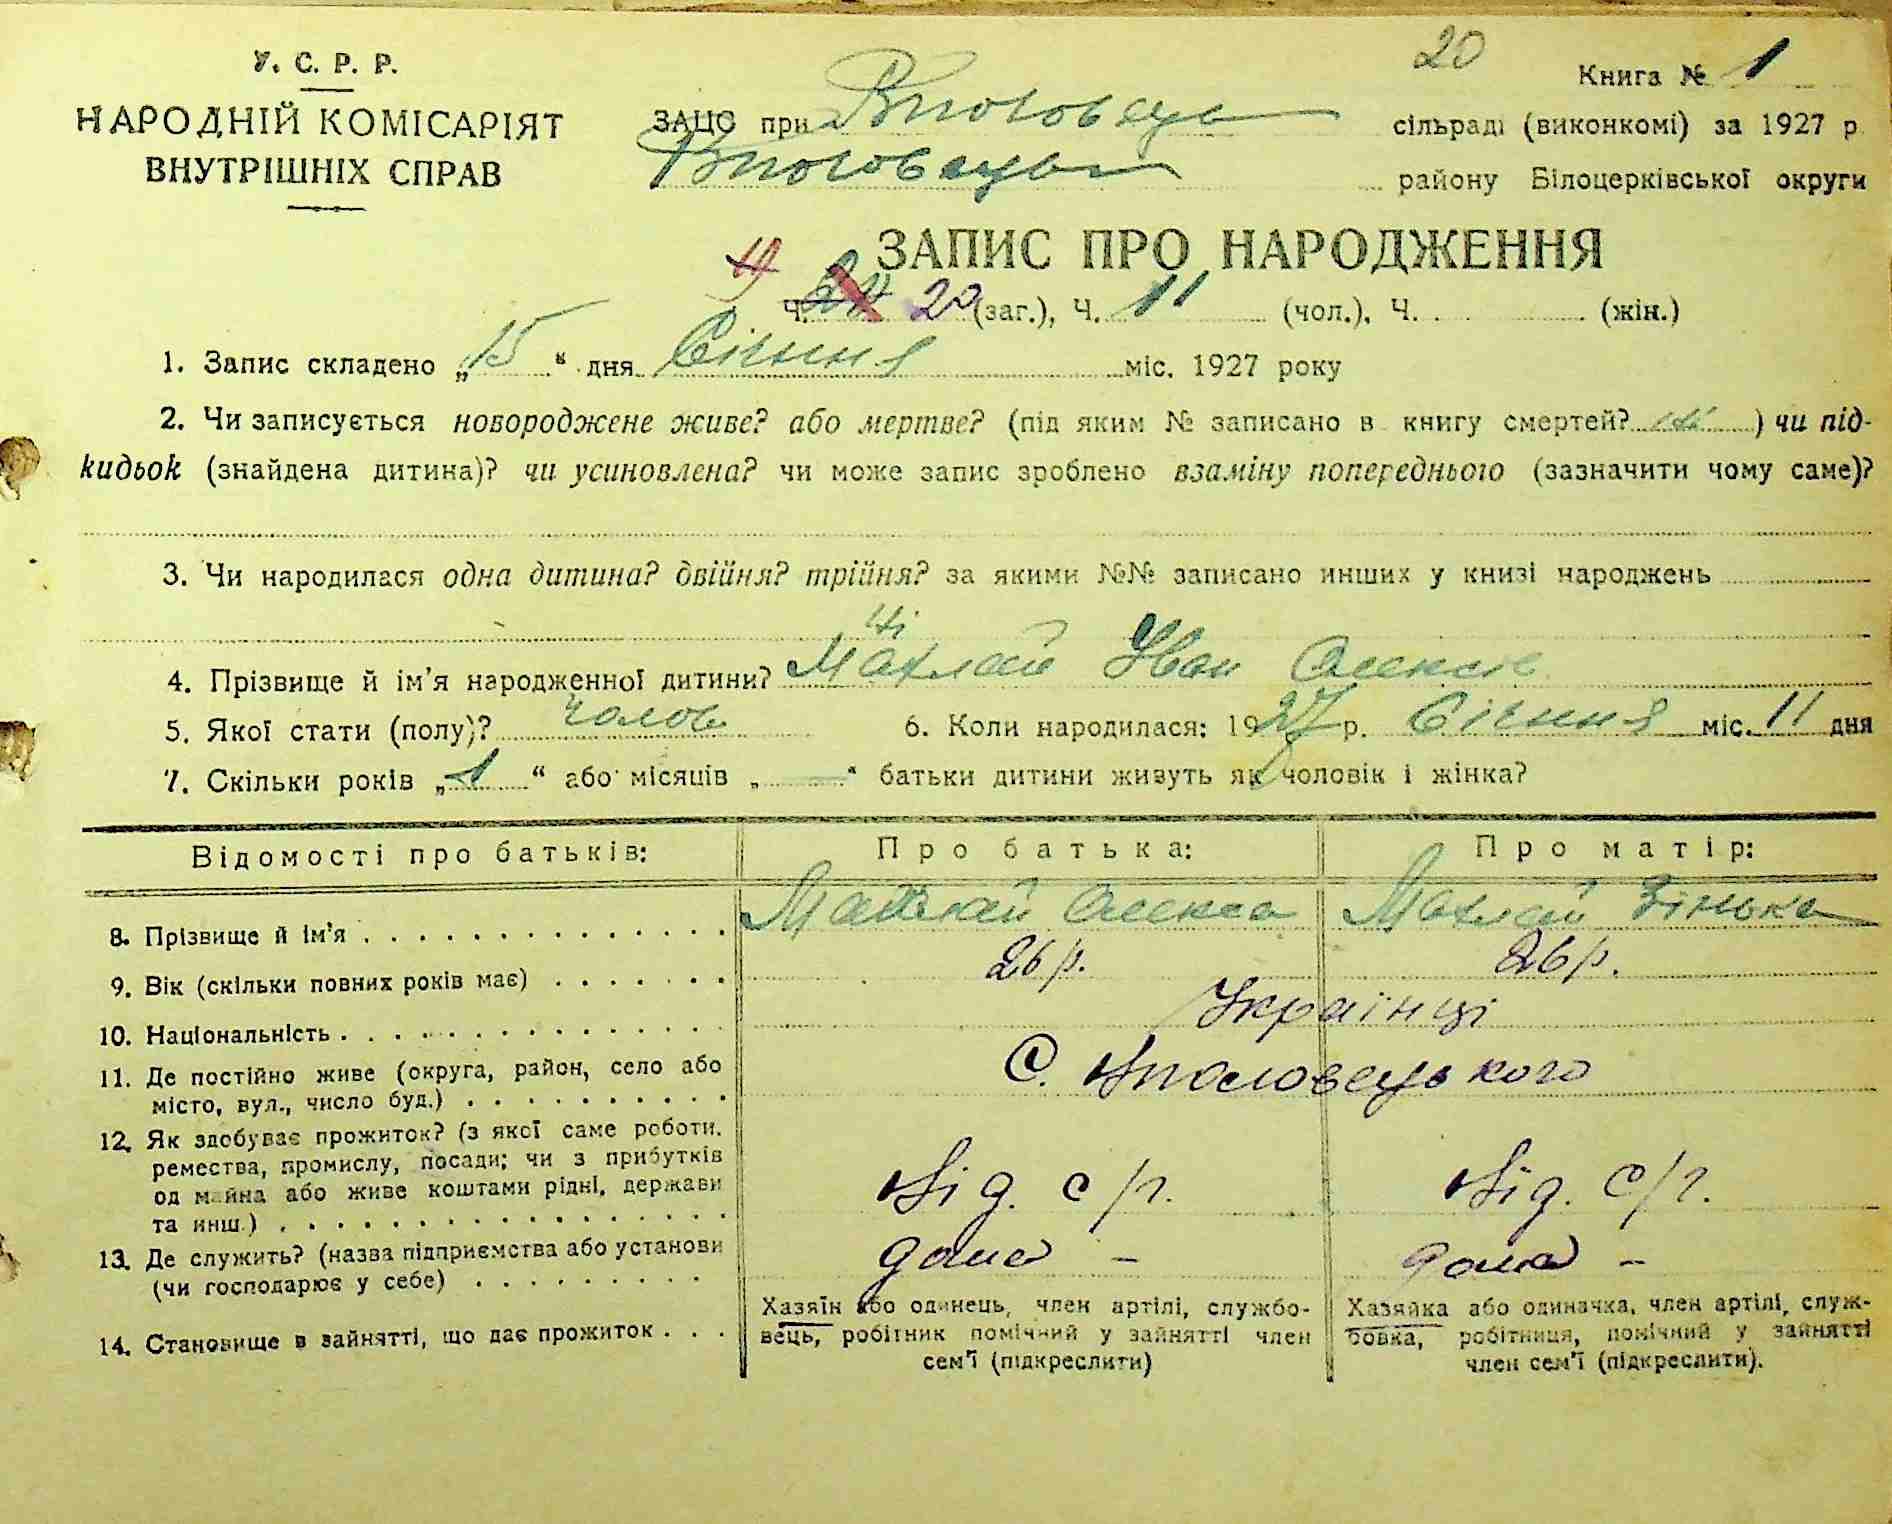 20
У. С. Р. Р.
Книга № 1
НАРОДНІЙ КОМІСАРІЯТ
ВНУТРІШНІХ СПРАВ
ЗАЦС при сільраді (виконкомі) за 1927 р
району Білоцерківської округи
ЗАПИС ПРО НАРОДЖЕННЯ
19 Ч. 20 (заг.), Ч. 11 (чол.), Ч. (жін.)
1. Запис складено „15“ дня Січня міс. 1927 року
2. Чи записується новороджене живе? або мертве? (під яким № записано в книгу смертей? ні ) чи під-
кидьок (знайдена дитина)? чи усиновлена? чи може запис зроблено взаміну попереднього (зазначити чому саме)?
3. Чи народилася одна дитина? двійня? трійня? за якими №№ записано инших у книзі народжень
ні
4. Прізвище й ім'я народженної дитини? Махлай Іван Олексів
5. Якої стати (полу)? чолов 6. Коли народилася: 1927 р. Січння міс. 11 дня
7. Скільки років „1“ або місяців „—“ батьки дитини живуть як чоловік і жінка?
Відомості про батьків:
Про батька:
Про матір:
8. Прізвище й ім'я Махлай Олекса Махлай Зінька
9. Вік (скільки повних років має) 26 р. 26 р.
10. Національність Українці
11. Де постійно живе (округа, район, село або
місто, вул., число буд.) С.
12. Як здобуває прожиток? (з якої саме роботи,
ремества, промислу, посади; чи з прибутків
од майна або живе коштами рідні, держави
та инш.) Від. с/г. Від. с/г.
13. Де служить? (назва підприємства або установи
(чи господарює у себе) дома – дома –
14. Становище в зайнятті, що дає прожиток
Хазяїн або одинець, член артілі, службо-
вець, робітник помічний у зайнятті член
сем'ї (підкреслити)
Хазяйка або одиначка, член артілі, служ-
бовка, робітниця, помічний у зайнятті
член сем'ї (підкреслити).